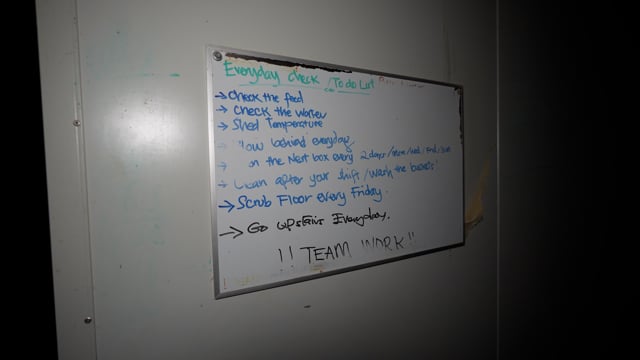 Everyday check / To do List
→ Check the feed
→ Check the water
→ Shed Temperature
behind everyday,
→ on the Nest box every 2 days /
→ Clean after your shift / Wash the
→ Scrub Floor every Friday.
→ Go upstairs Everyday.
!! TEAM WORK!!